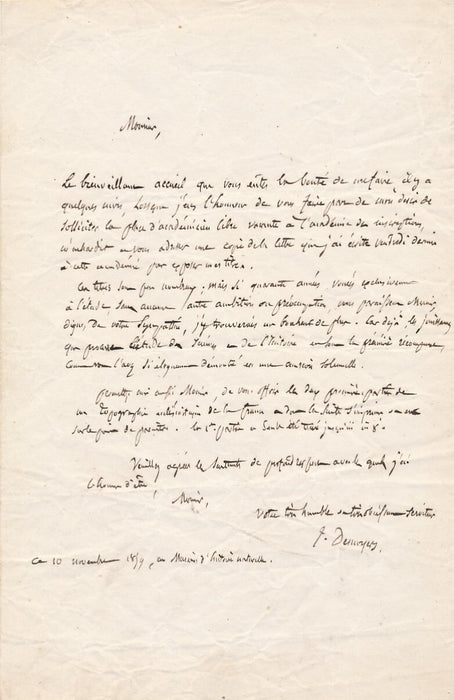 Monsieur,
Le bienveillant accueil que vous eûtes la bonté de me faire, il y a
quelques mois, lorsque j'eus l'honneur de vous faire part de mon désir de
solliciter la place d'académicien libre vacante à l'académie des inscriptions,
m'enhardit à vous adresser une copie de la lettre que j'ai écrite vendredi dernier
à cette académie pour exposer mes titres.
Ces titres sont peu nombreux; mais si quarante années vouées exclusivement
à l'étude sans aucune autre ambition ou préoccupation, vous paraissent Monsieur,
dignes de votre sympathie, j'y trouverais un bonheur de plus. Car déjà les jouissances
que procure l'étude des Sciences et de l'histoire en sont la première récompense,
comme vous l'avez si éloquemment démontré en une occasion solennelle.
permettez moi aussi Monsieur, de vous offrir les deux premières parties de
ma Topographie ecclésiastique de la France dont la suite s'imprime
sur le point de paraître. La 1re partie a été tirée jusqu'ici in 8°.
Veuillez agréer le sentiment de profond respect avec lequel j'ai
l'honneur d'être
Monsieur,
Votre très humble et très obéissant Serviteur
J. Desnoyers,
Ce 10 novembre 1859, au Muséum d'histoire naturelle.